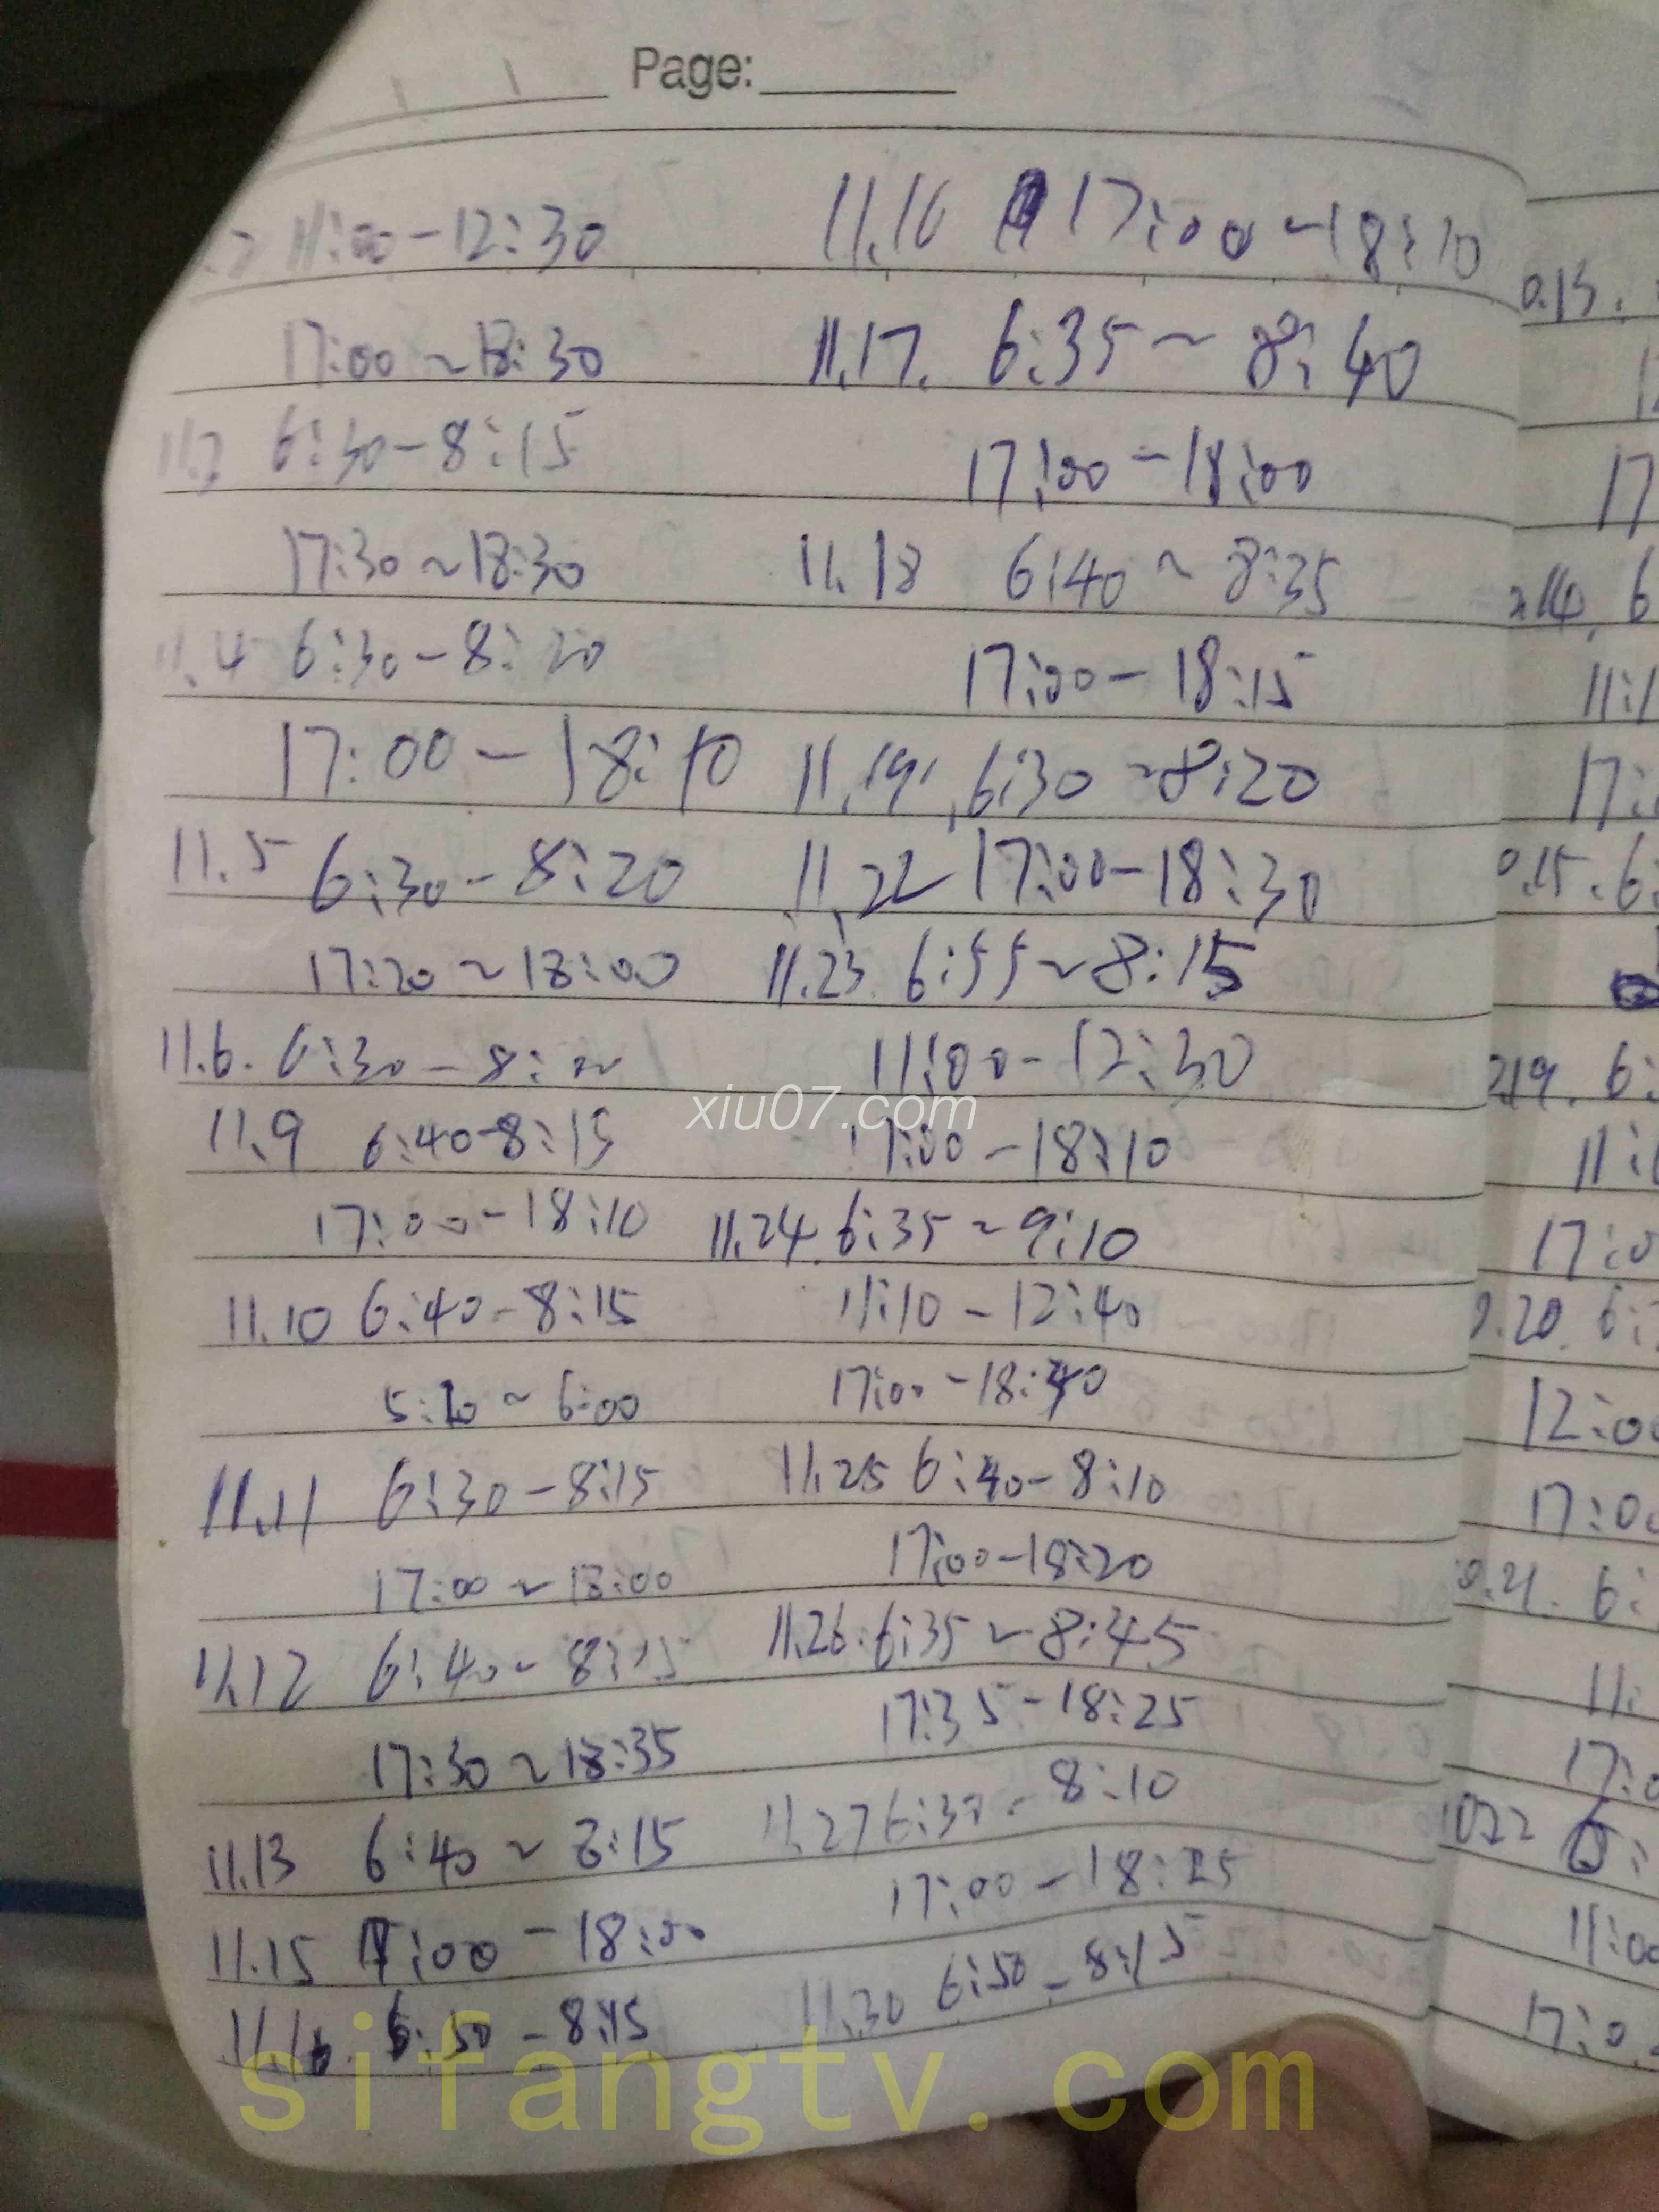 Page:
11:00-12:30
17:00~18:30
6:30-8:15
17:30~18:30
11.4 6:30-8:20
17:00-18:10
11.5 6:30-8:20
17:20~18:00
11.6. 6:30-8:
11.9 6:40-8:15
17:00-18:10
11.10 6:40-8:15
5:20~6:00
11.11 6:30-8:15
17:00~18:00
11.12 6:40-8:15
17:30~18:35
11.13 6:40~8:15
11.15 17:00-18:00
11.16. 6:50-8:15
11.16 17:00~18:10
11.17. 6:35~8:40
17:00-18:00
11.18 6:40~8:35
17:00-18:15
11.19, 6:30~8:20
11.22 17:00-18:30
11.23. 6:55~8:15
11:00-12:30
17:00-18:10
11.24. 6:35~9:10
11:10-12:40
17:00-18:40
11.25 6:40-8:10
17:00-18:20
11.26. 6:35~8:45
17:35-18:25
11.27 6:30-8:10
17:00-18:25
11.30 6:50-8:15
0.15.
17
6
11:1
17:
0.15. 6:
6:
11:
17:0
.20. 6:
12:00
17:00
0.21. 6:
11:
17:0
1022 6:
11:00
17:0
xiu07.com
sifangtv.com